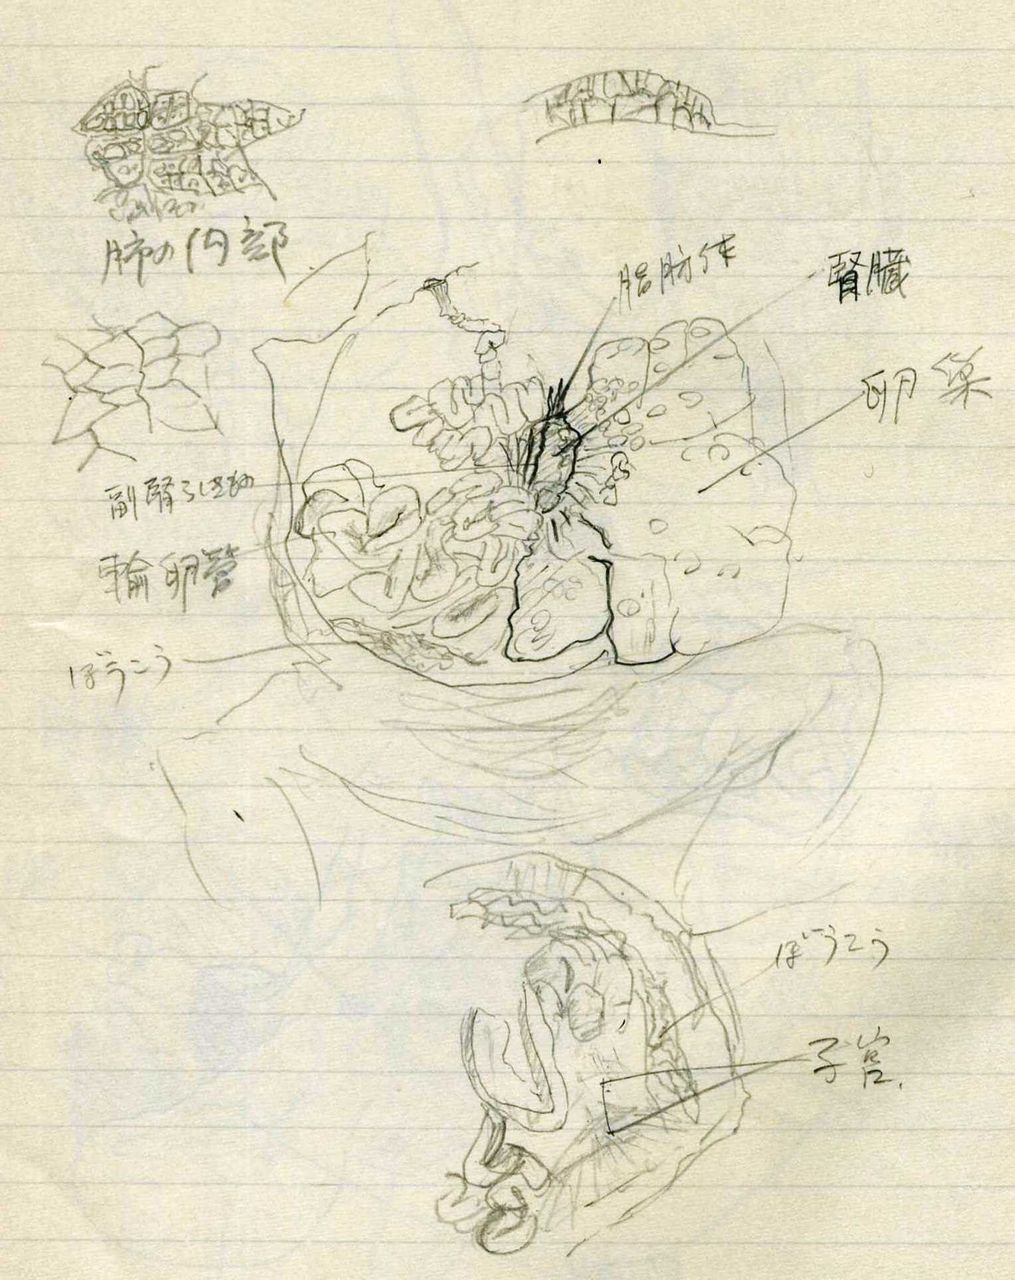 肺の内部
脂肪体
腎臓
卵巣
副腎
輸卵管
ぼうこう
ぼうこう
子宮